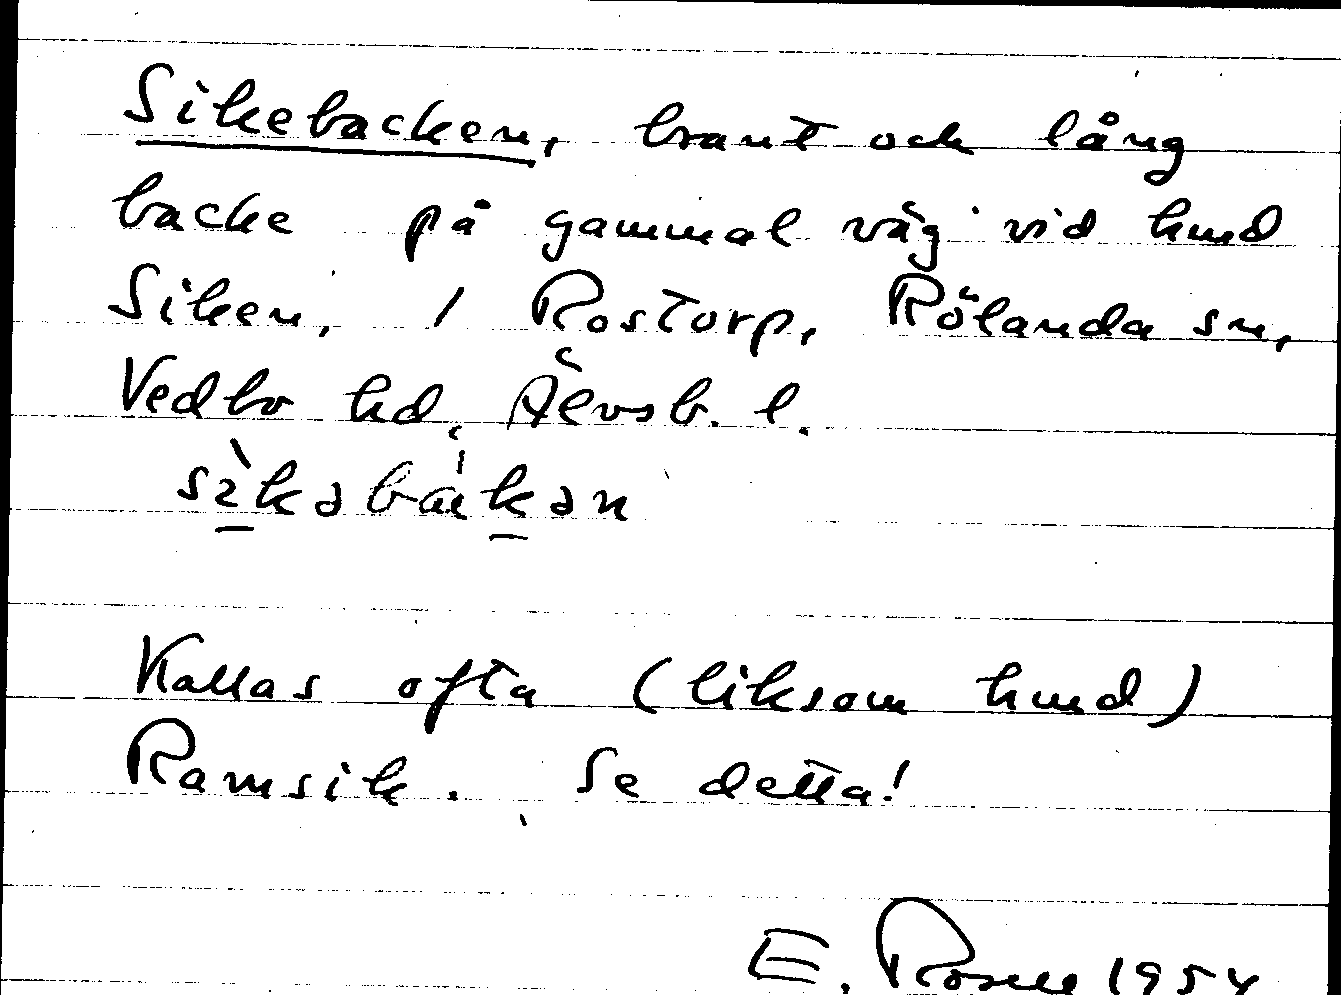 Sikebacken, brant och lång
backe på gammal väg vid hmd
Siken, / Rostorp, Rölanda sn,
Vedbo hd, Älvsb. l.
Kallas ofta (liksom hmd)
Ramsik. Se detta!
E. Rosell 1954